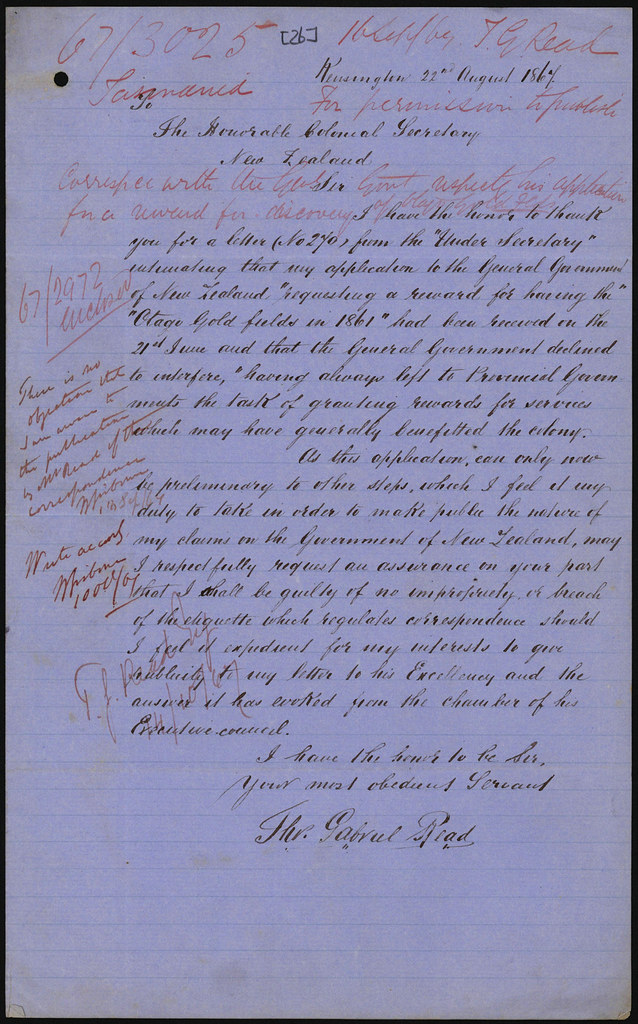 67/3025 [26] 16 Sept/67. T. G. Read
Kensington 22nd August 1867.
Tasmania
For permission to publish
To
The Honorable Colonial Secretary
New Zealand
Correspce with the Genl Govt respectg his application
for a reward for discovery of Otago Gold
Sir
I have the honor to thank
you for a letter (No 270) from the "Under Secretary"
intimating that my application to the General Government
of New Zealand "requesting a reward for having the"
"Otago Gold fields in 1861" had been received on the
21st June and that the General Government declined
to interfere, "having always left to Provincial Govern-
ments the task of granting rewards for services
which may have generally benefitted the colony.
As this application, can only now
be preliminary to other steps, which I feel it my
duty to take in order to make public the nature of
my claims on the Government of New Zealand, may
I respectfully request an assurance on your part
that I shall be guilty of no impropriety or breach
of the etiquette which regulates correspondence should
I feel it expedient for my interests to give
publicity to my letter to his Excellency and the
answer it has evoked from the chamber of his
Executive council.
I have the honor to be Sir,
Your most obedient Servant
Tho. Gabriel Read
67/2972
enclosed
There is no
objection that
I am aware to
the publication
by Mr Read of the
correspondence
Write accordy
T. G. Read Esq